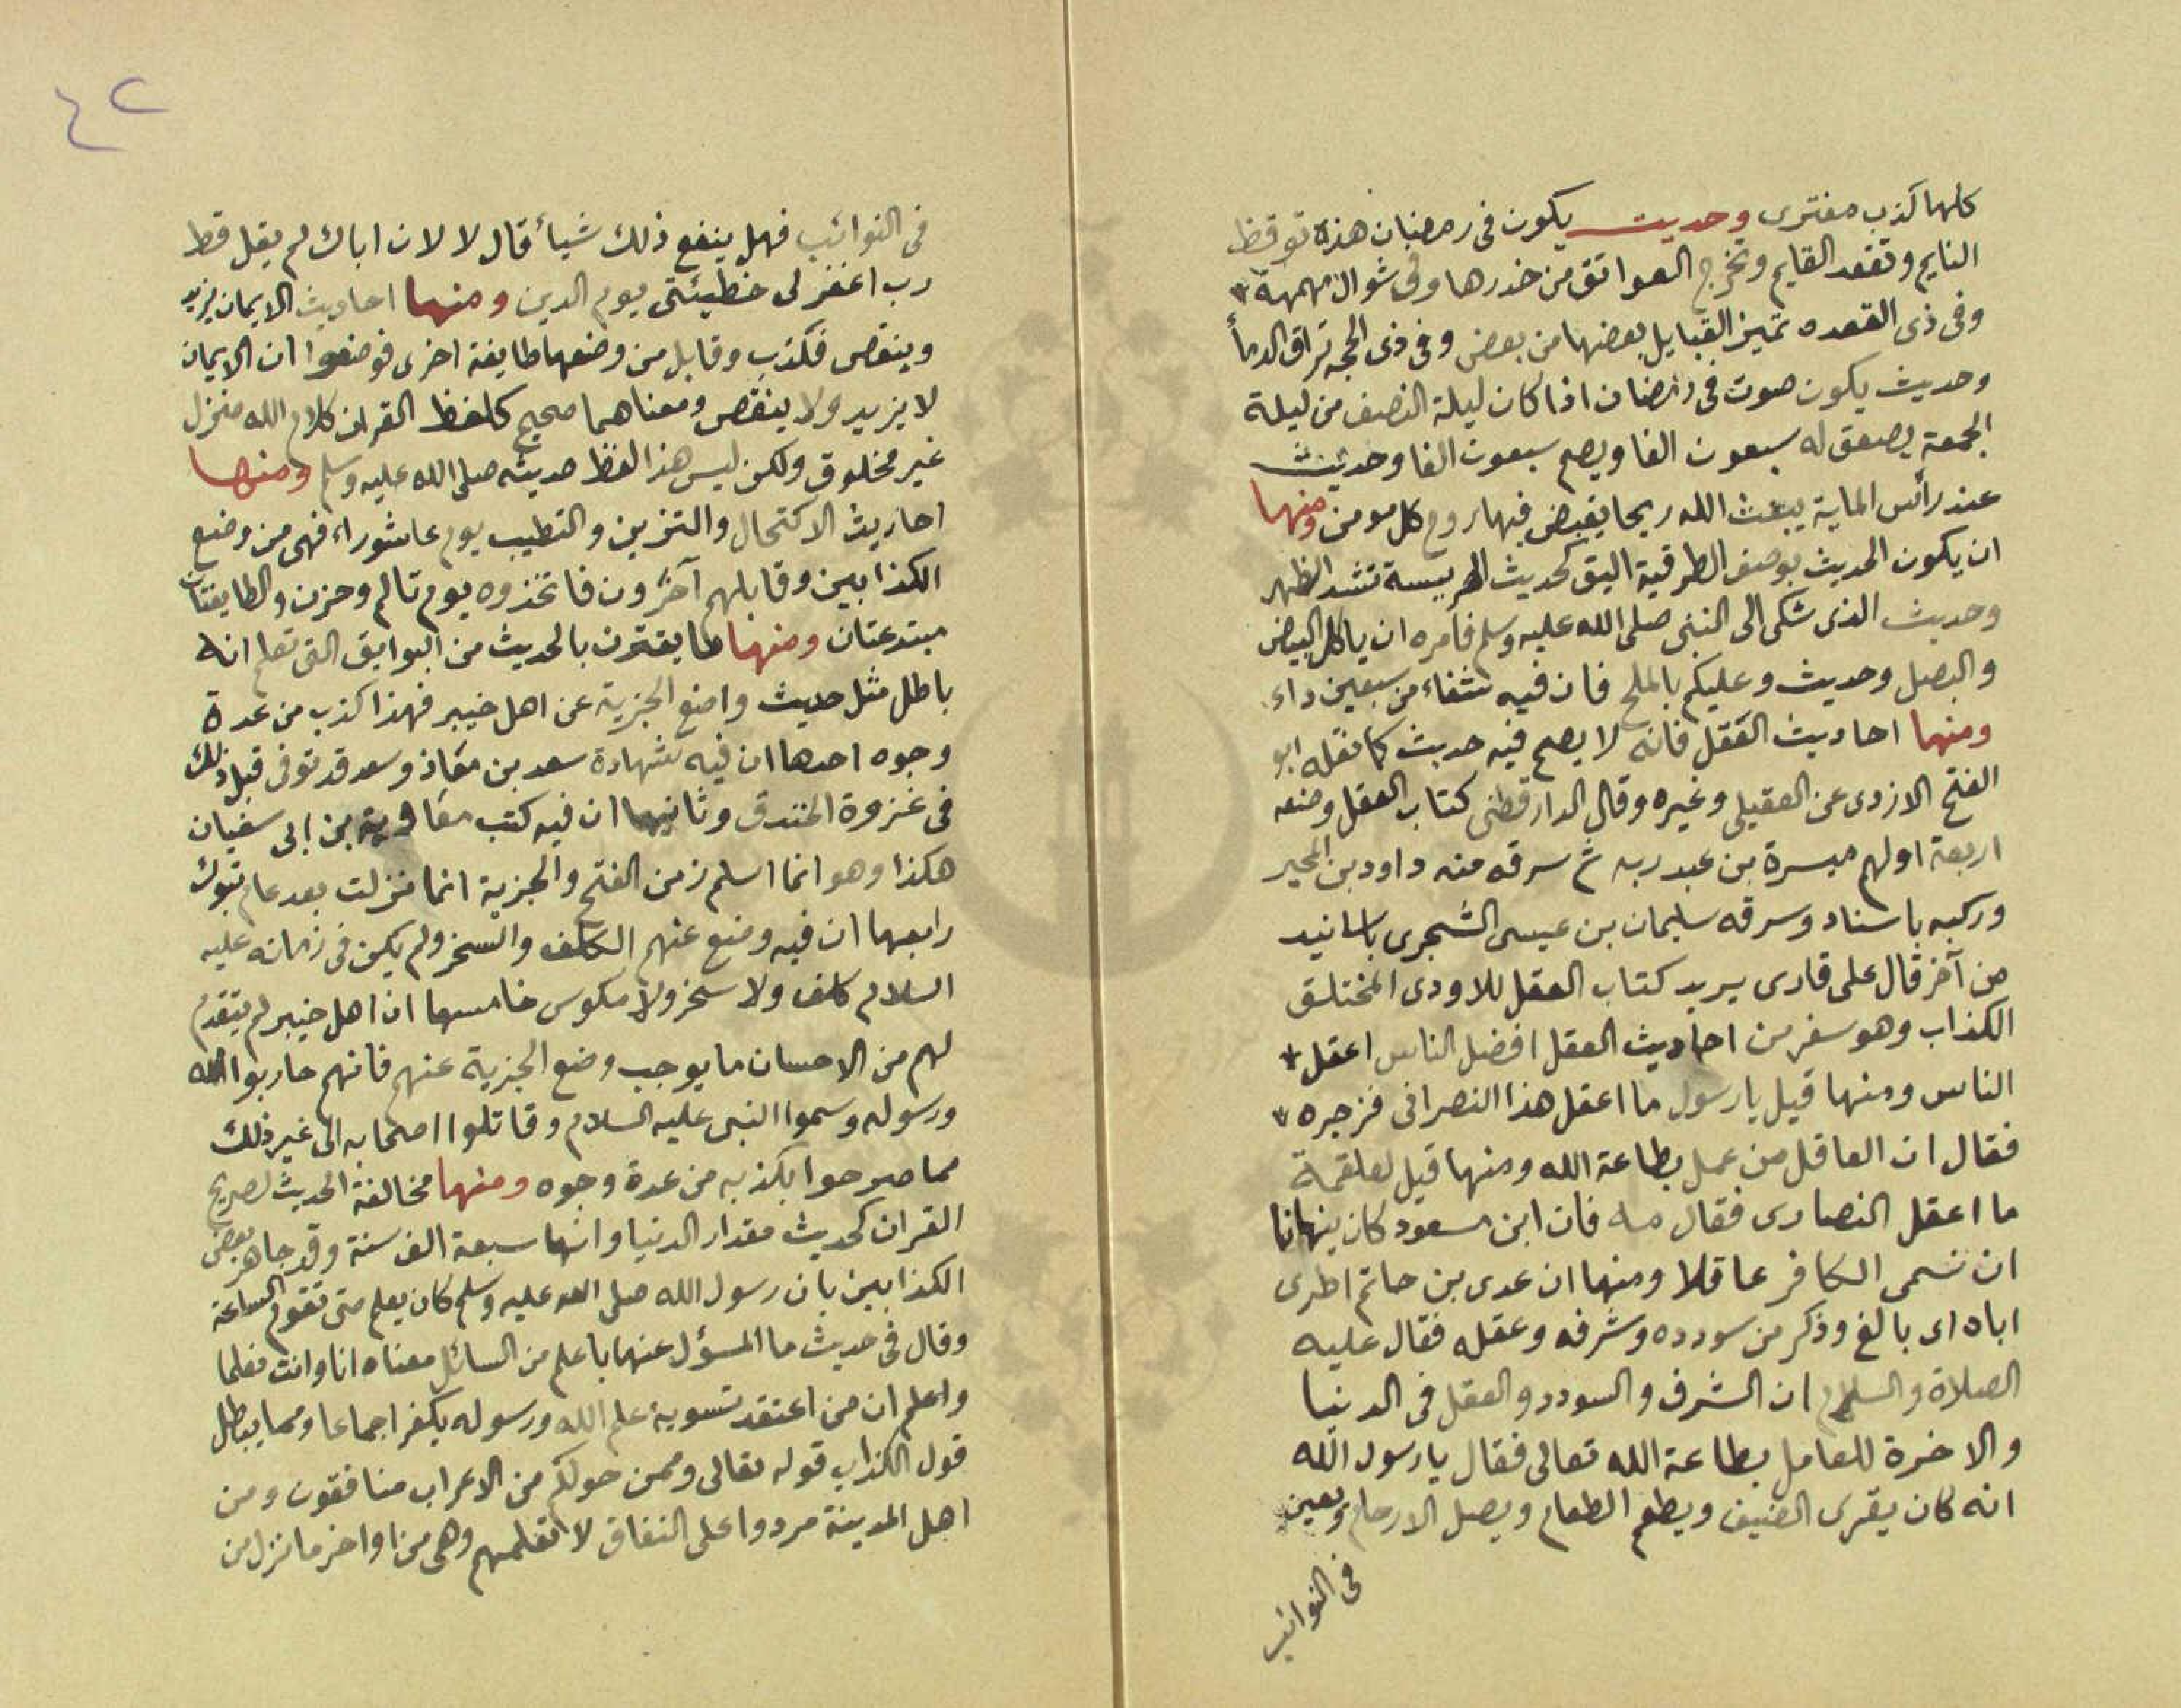 كلها كذب مفترى وحديث يكون فى رمضان هذة توقظ
النايم وتقعد القايم وتخرج العواتق من خدرها وفى شوال مهمهة
وفى ذى القعده تميز القبايل بعضها من بعض وفى ذى الحجه تراق الدمأ
وحديث يكون صوت فى رمضان اذا كان ليلة النصف من ليلة
الجمعة يصعق له سبعون الفا ويصم سبعون الفا وحديث
عند رأس الماية يبعث الله ريحا يقبض فيها روح كل مومن ومنها
ان يكون الحديث بوصف الطرقية اليق كحديث الهريسة تشد الظهر
وحديث الذى شكى الى النبى صلى الله عليه وسلم فامره ان ياكل البيض
والبصل وحديث وعليكم بالملح فان فيه شفاء من سبعين داء
ومنها احاديث العقل فانه لا يصح فيه حديث كما نقله ابو
الفتح الازدى عن العقيلى وغيره وقال الدارقطنى كتاب العقل وضعه
اربعة اولهم ميسرة بن عبد ربه ثم سرقه منه داود بن المحبر
وركبه باسناد وسرقه سليمان بن عيسى الشجرى باسانيد
من آخر قال على قارى يريد كتاب العقل للاودى المختلق
الكذاب وهو سفر من احاديث العقل افضل الناس اعقل
الناس ومنها قيل يا رسول ما اعقل هذا النصرانى فزجره
فقال ان العاقل من عمل بطاعة الله ومنها قيل لعلقمة
ما اعقل النصارى فقال مه فان ابن مسعود كان ينهانا
ان نسمى الكافر عاقلا ومنها ان عدى بن حاتم اطرى
اباه اى بالغ وذكر من سودده وشرفه وعقله فقال عليه
الصلاة والسلام ان الشرف والسودد والعقل فى الدنيا
والاخرة للعامل بطاعة الله تعالى فقال يا رسول الله
انه كان يقرى الضيف ويطعم الطعام ويصل الارحام ويعين
فى النوائب
٤٢
فى النوائب فهل ينفع ذلك شيأ قال لا لان اباك لم يقل قط
رب اغفر لى خطيئتى يوم الدين ومنها احاديث الايمان يزيد
وينقص فكذب وقابل من وضعها طايفة اخرى فوضعوا ان الايمان
لا يزيد ولا ينقص ومعناهما صحيح كلفظ القران كلام الله منزل
غير مخلوق ولكن ليس هذا لفظ حديثه صلى الله عليه وسلم ومنها
احاديث الاكتحال والتزين والتطيب يوم عاشوراء فهى من وضع
الكذابين وقابلهم آخرون فاتخذوه يوم تالم وحزن والطايفتان
مبتدعتان ومنها ما يقترن بالحديث من البوايق التى تعلم انه
باطل مثل حديث واضع الجزية عن اهل خيبر فهذا كذب من عدة
وجوه احدها ان فيه شهادة سعد بن معاذ وسعد قد توفى قبل ذلك
فى غزوة الخندق وثانيها ان فيه كتب معاوية بن ابى سفيان
هكذا وهو انما اسلم زمن الفتح والجزية انما نزلت بعد عام تبوك
رابعها ان فيه وضع عنهم الكلف والسخر ولم يكن فى زمانه عليه
السلام كلف ولا سخر ولا مكوس خامسها ان اهل خيبر لم يتقدم
لهم من الاحسان ما يوجب وضع الجزية عنهم فانهم حاربوا الله
ورسوله وسموا النبى عليه السلام وقاتلوا اصحابه الى غير ذلك
مما صرحوا بكذبه من عدة وجوه ومنها مخالفة الحديث لصريح
القران كحديث مقدار الدنيا وانها سبعة الف سنة وقد جاهر بعض
الكذابين بان رسول الله صلى الله عليه وسلم كان يعلم متى تقوم الساعة
وقال فى حديث ما المسؤل عنها باعلم من السائل معناه انا وانت نعلما
واعلم ان من اعتقد تسوية علم الله ورسوله يكفر اجماعا ومما يبطل
قول الكذاب قوله تعالى وممن حولكم من الاعراب منافقون ومن
اهل المدينة مردوا على النفاق لا تعلمهم وهى من اواخر ما نزل من